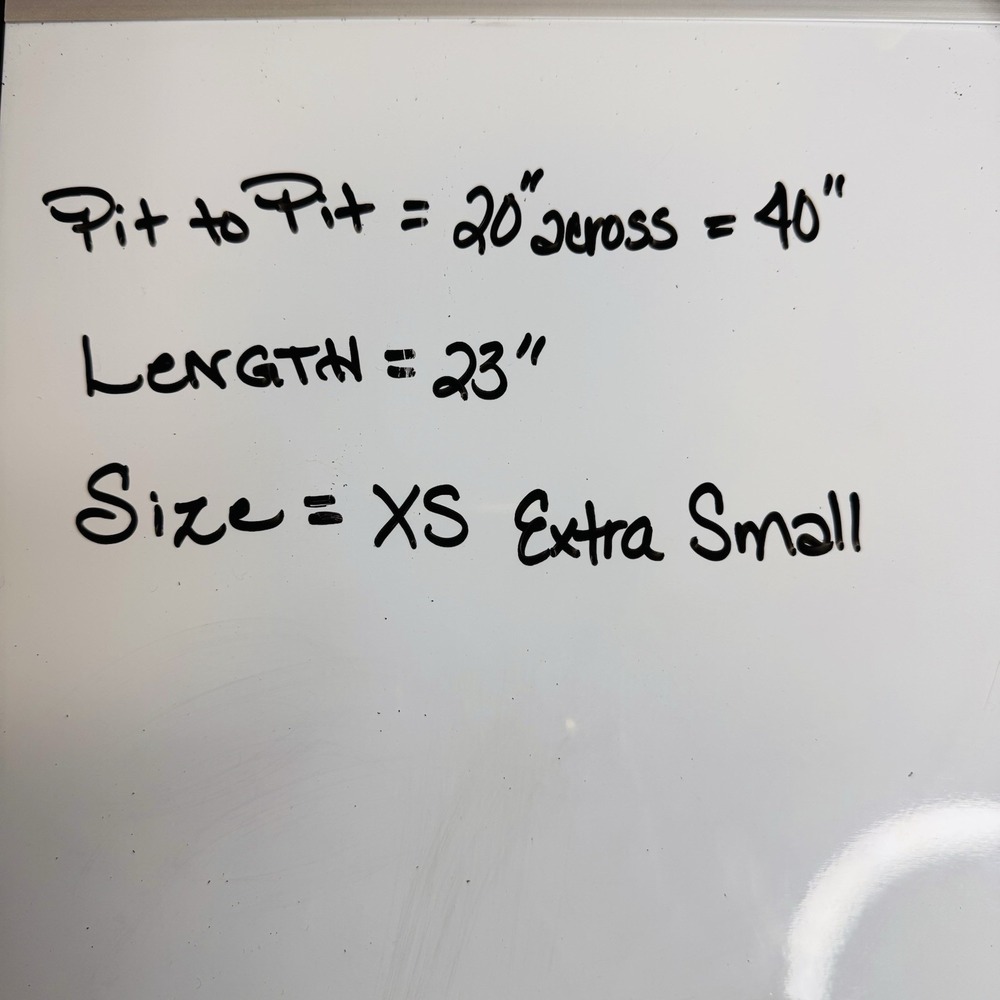 Pit to Pit = 20" across = 40"
LeNGTH = 23"
Size = XS Extra Small